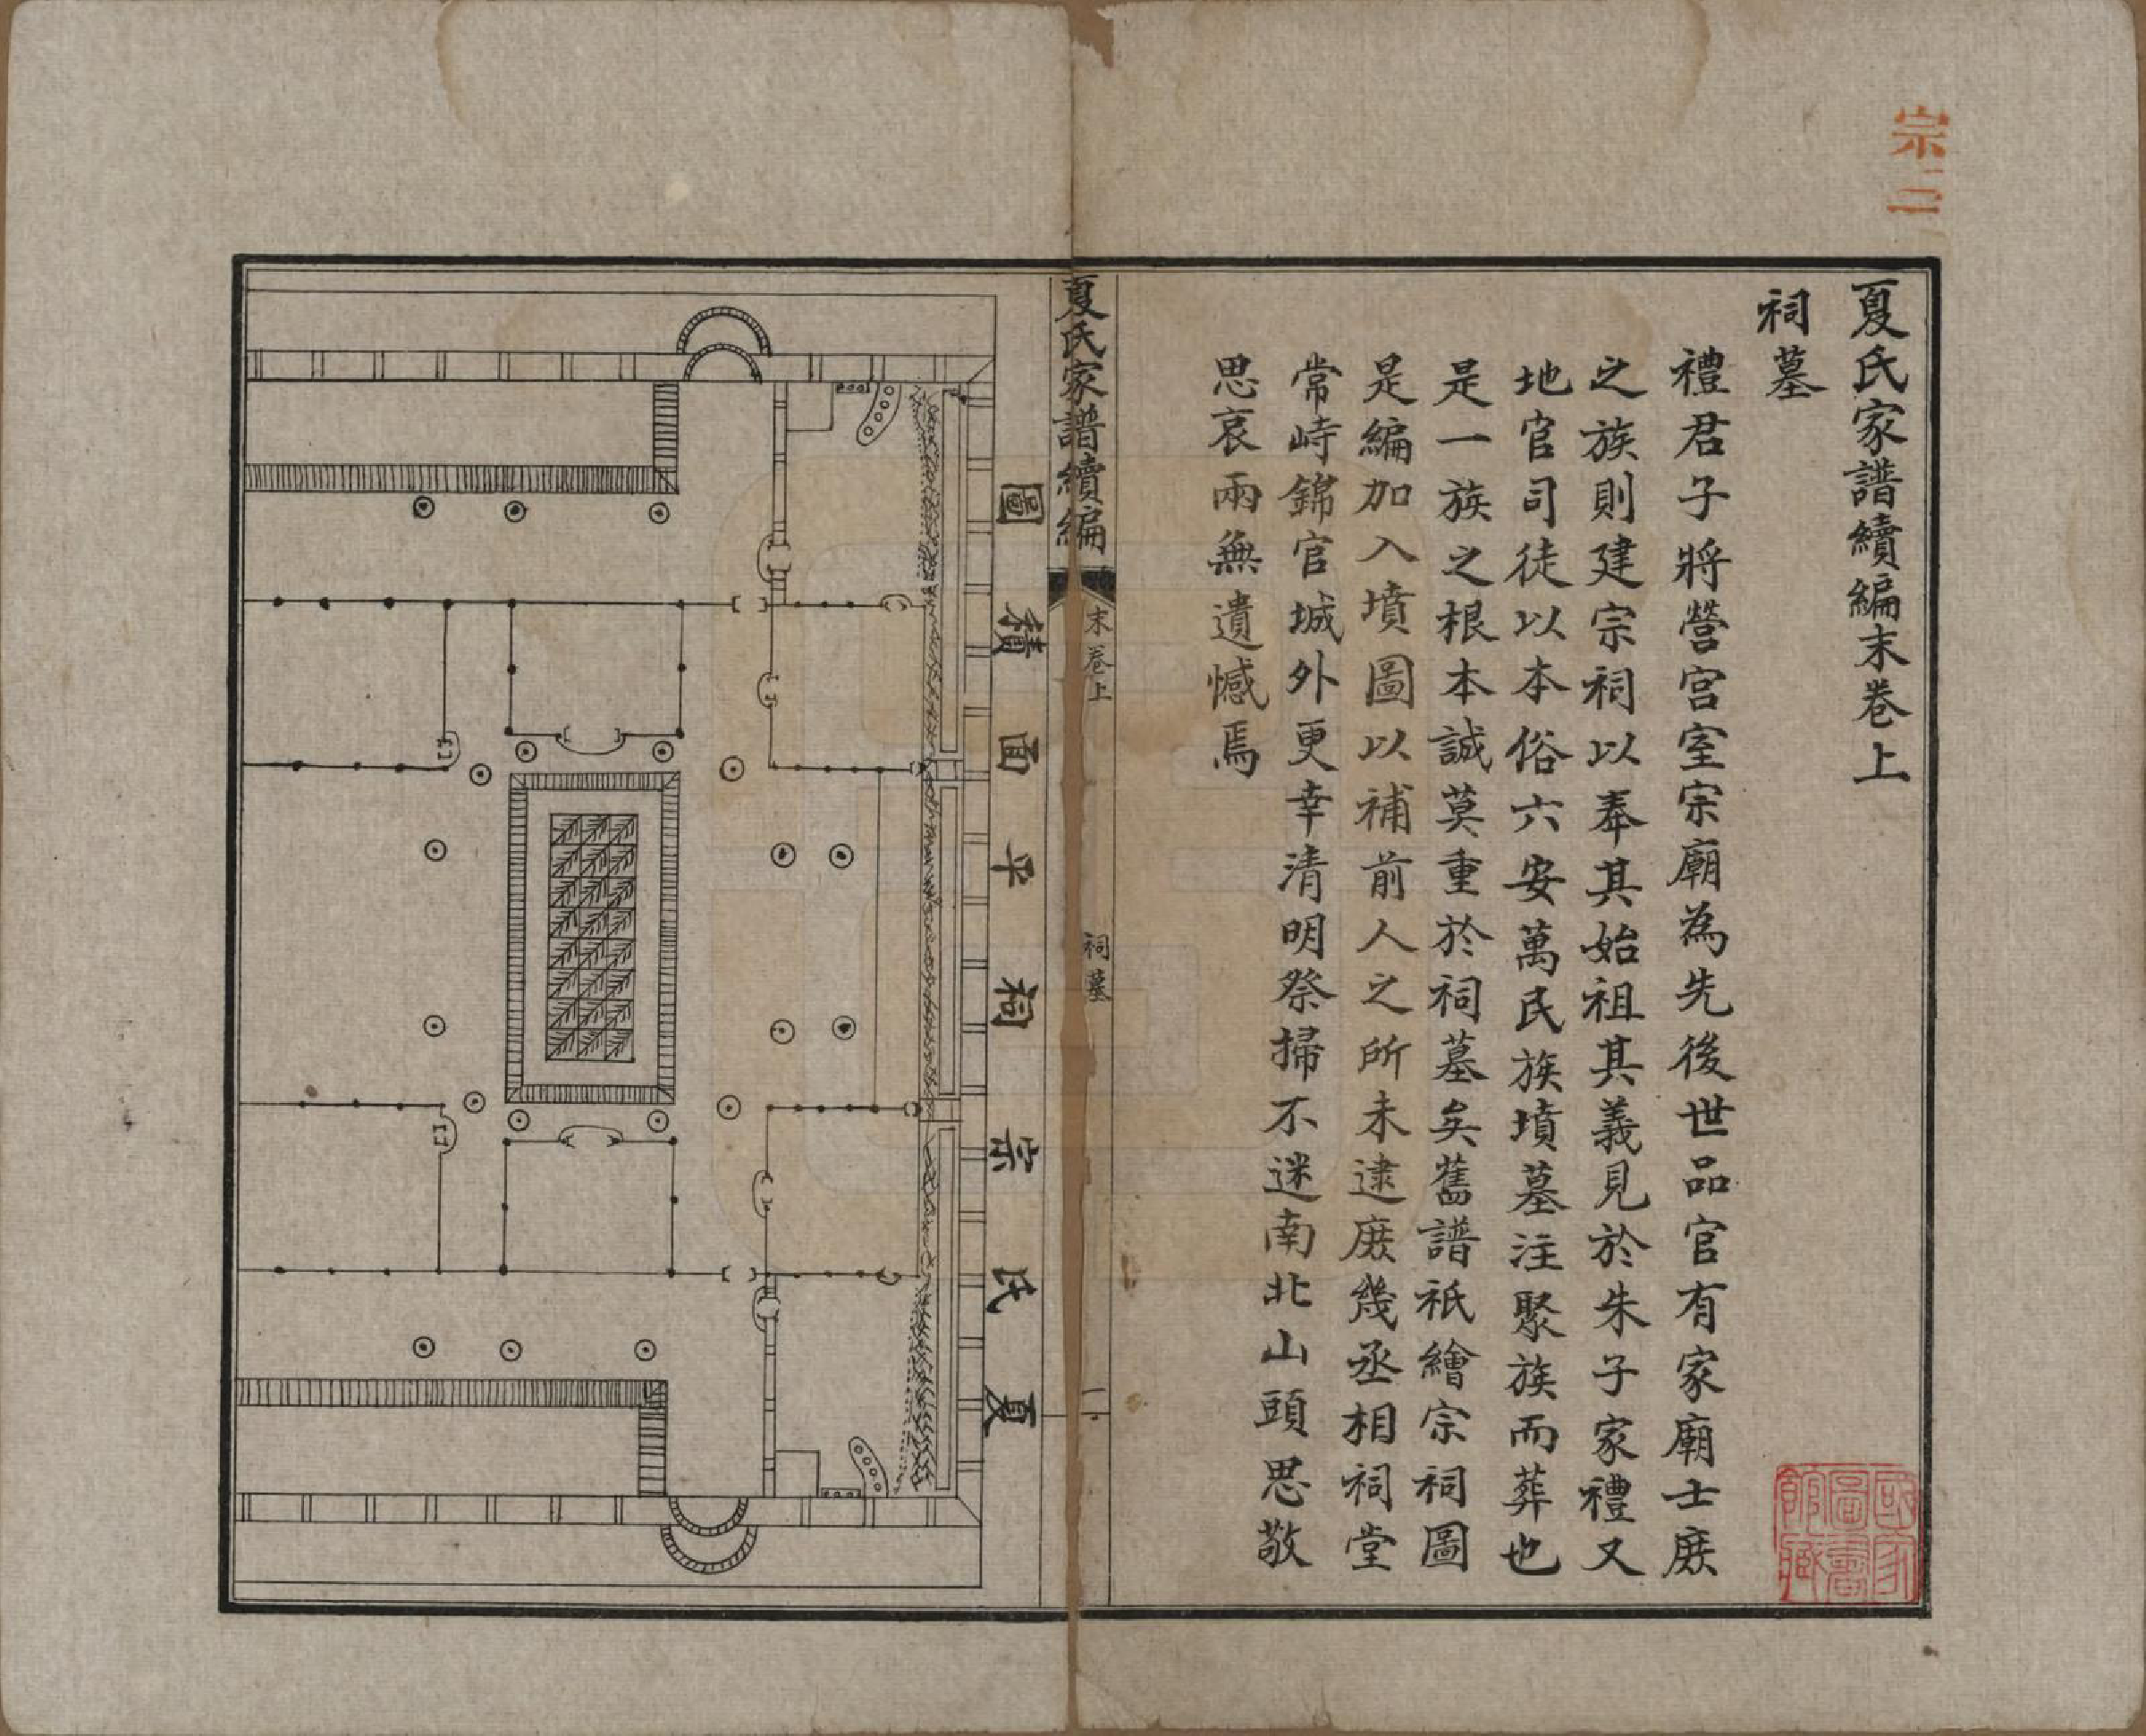 宗二
夏氏家譜續編末卷上
祠墓
禮君子將營宮室宗廟為先後世品官有家廟士庶
之族則建宗祠以奉其始祖其義見於朱子家禮又
地官司徒以本俗六安萬民族墳墓注聚族而葬也
是一族之根本誠莫重於祠墓矣舊譜祇繪宗祠圖
是編加入墳圖以補前人之所未逮庶幾丞相祠堂
常峙錦官城外更幸清明祭掃不迷南北山頭思敬
思哀兩無遺憾焉
國家圖書館藏
夏氏家譜續編
末卷上
祠墓
一
夏氏宗祠平面積圖